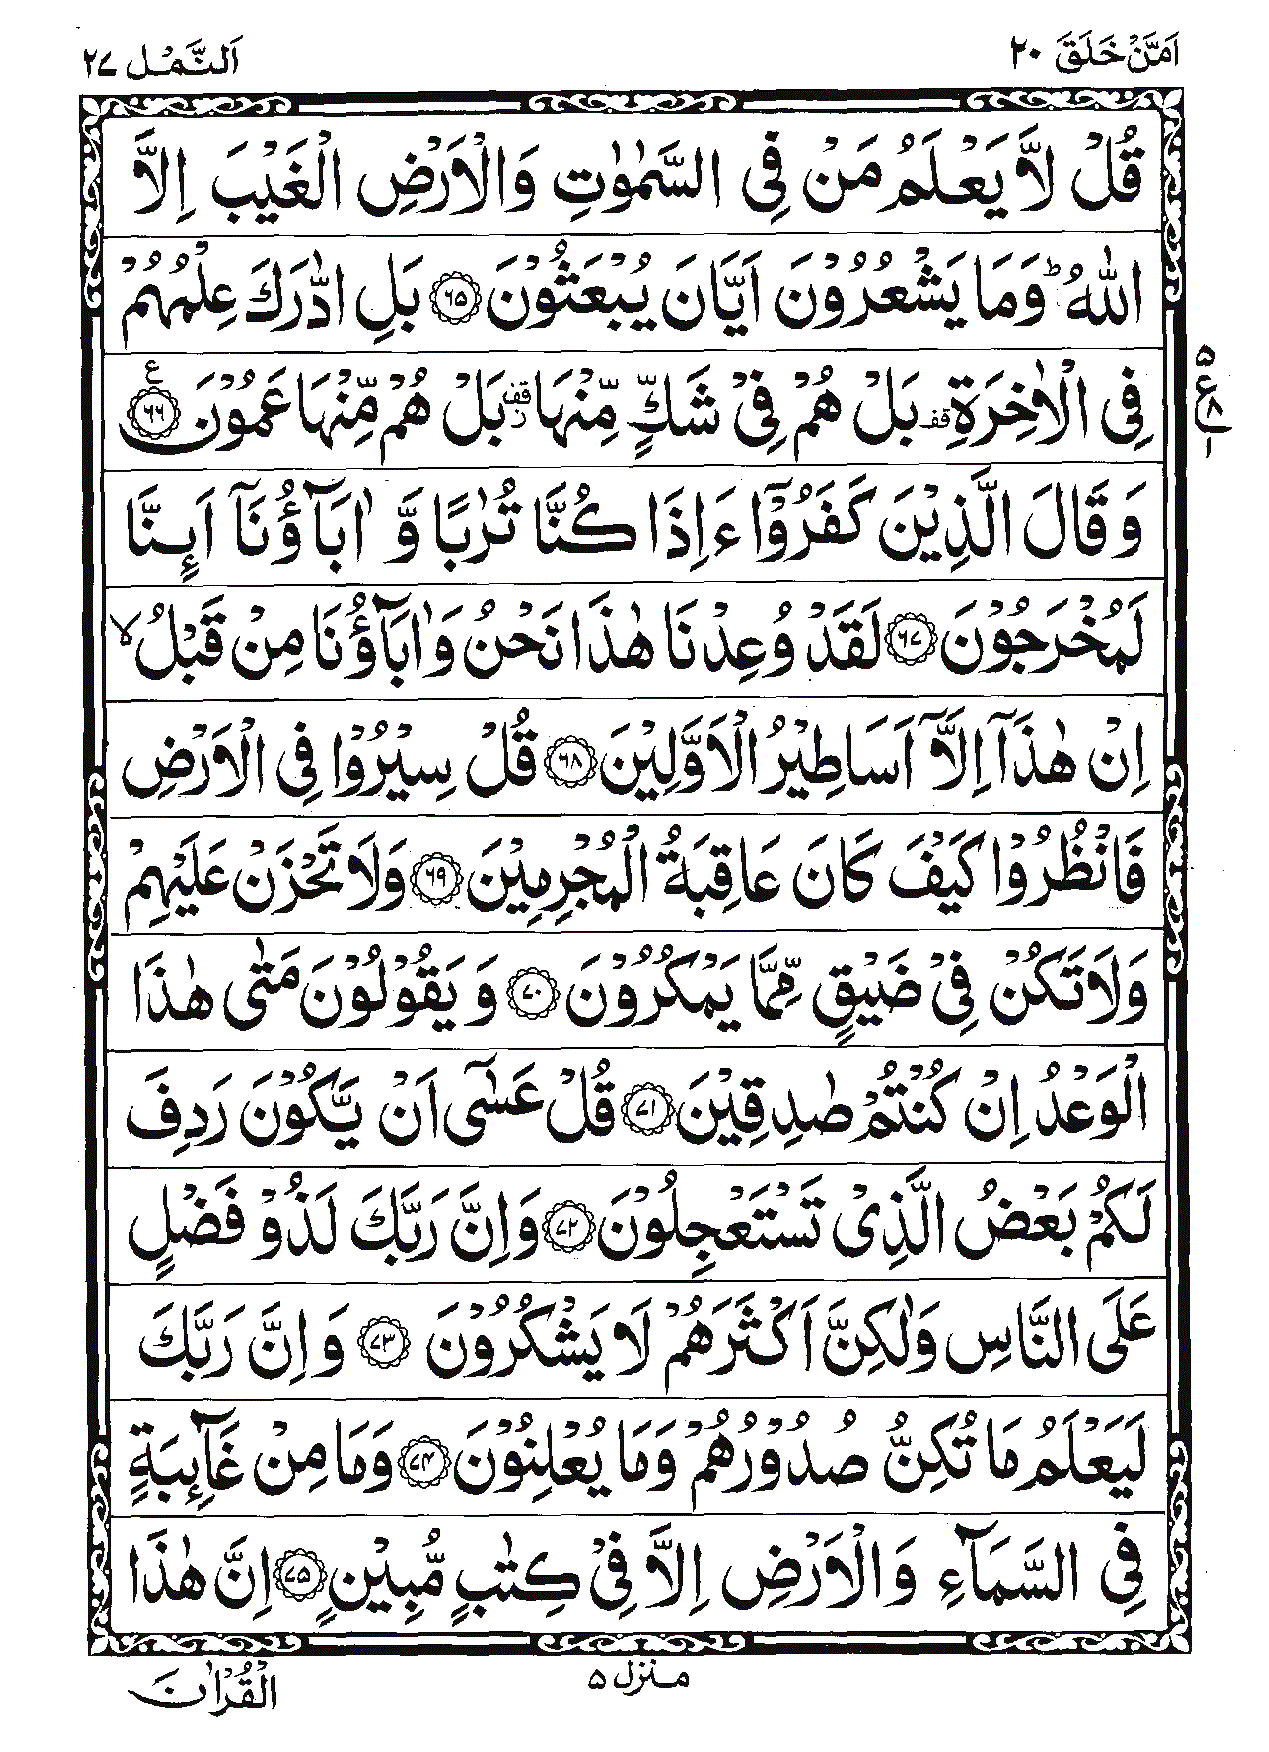 اَمَّنْ خَلَقَ ٢٠
اَلنَّمْل ٢٧
قُلْ لَّا يَعْلَمُ مَنْ فِى السَّمٰوٰتِ وَالْاَرْضِ الْغَيْبَ اِلَّا
اللّٰهُ ؕ وَمَا يَشْعُرُوْنَ اَيَّانَ يُبْعَثُوْنَ ۝٦٥ بَلِ ادّٰرَكَ عِلْمُهُمْ
فِى الْاٰخِرَةِ قف بَلْ هُمْ فِىْ شَكٍّ مِّنْهَا قف ز بَلْ هُمْ مِّنْهَا عَمُوْنَ ۝٦٦ ع
٥ ع ٨ ١
وَقَالَ الَّذِيْنَ كَفَرُوْٓا ءَاِذَا كُنَّا تُرٰبًا وَّ اٰبَآؤُنَآ اَئِنَّا
لَمُخْرَجُوْنَ ۝٦٧ لَقَدْ وُعِدْنَا هٰذَا نَحْنُ وَاٰبَآؤُنَا مِنْ قَبْلُ ۙ
اِنْ هٰذَآ اِلَّآ اَسَاطِيْرُ الْاَوَّلِيْنَ ۝٦٨ قُلْ سِيْرُوْا فِى الْاَرْضِ
فَانْظُرُوْا كَيْفَ كَانَ عَاقِبَةُ الْمُجْرِمِيْنَ ۝٦٩ وَلَا تَحْزَنْ عَلَيْهِمْ
وَلَا تَكُنْ فِىْ ضَيْقٍ مِّمَّا يَمْكُرُوْنَ ۝٧٠ وَ يَقُوْلُوْنَ مَتٰى هٰذَا
الْوَعْدُ اِنْ كُنْتُمْ صٰدِقِيْنَ ۝٧١ قُلْ عَسٰٓى اَنْ يَّكُوْنَ رَدِفَ
لَكُمْ بَعْضُ الَّذِىْ تَسْتَعْجِلُوْنَ ۝٧٢ وَاِنَّ رَبَّكَ لَذُوْ فَضْلٍ
عَلَى النَّاسِ وَلٰكِنَّ اَكْثَرَهُمْ لَا يَشْكُرُوْنَ ۝٧٣ وَ اِنَّ رَبَّكَ
لَيَعْلَمُ مَا تُكِنُّ صُدُوْرُهُمْ وَمَا يُعْلِنُوْنَ ۝٧٤ وَمَا مِنْ غَآئِبَةٍ
فِى السَّمَآءِ وَ الْاَرْضِ اِلَّا فِىْ كِتٰبٍ مُّبِيْنٍ ۝٧٥ اِنَّ هٰذَا
منزل ٥
الْقُرْاٰنَ